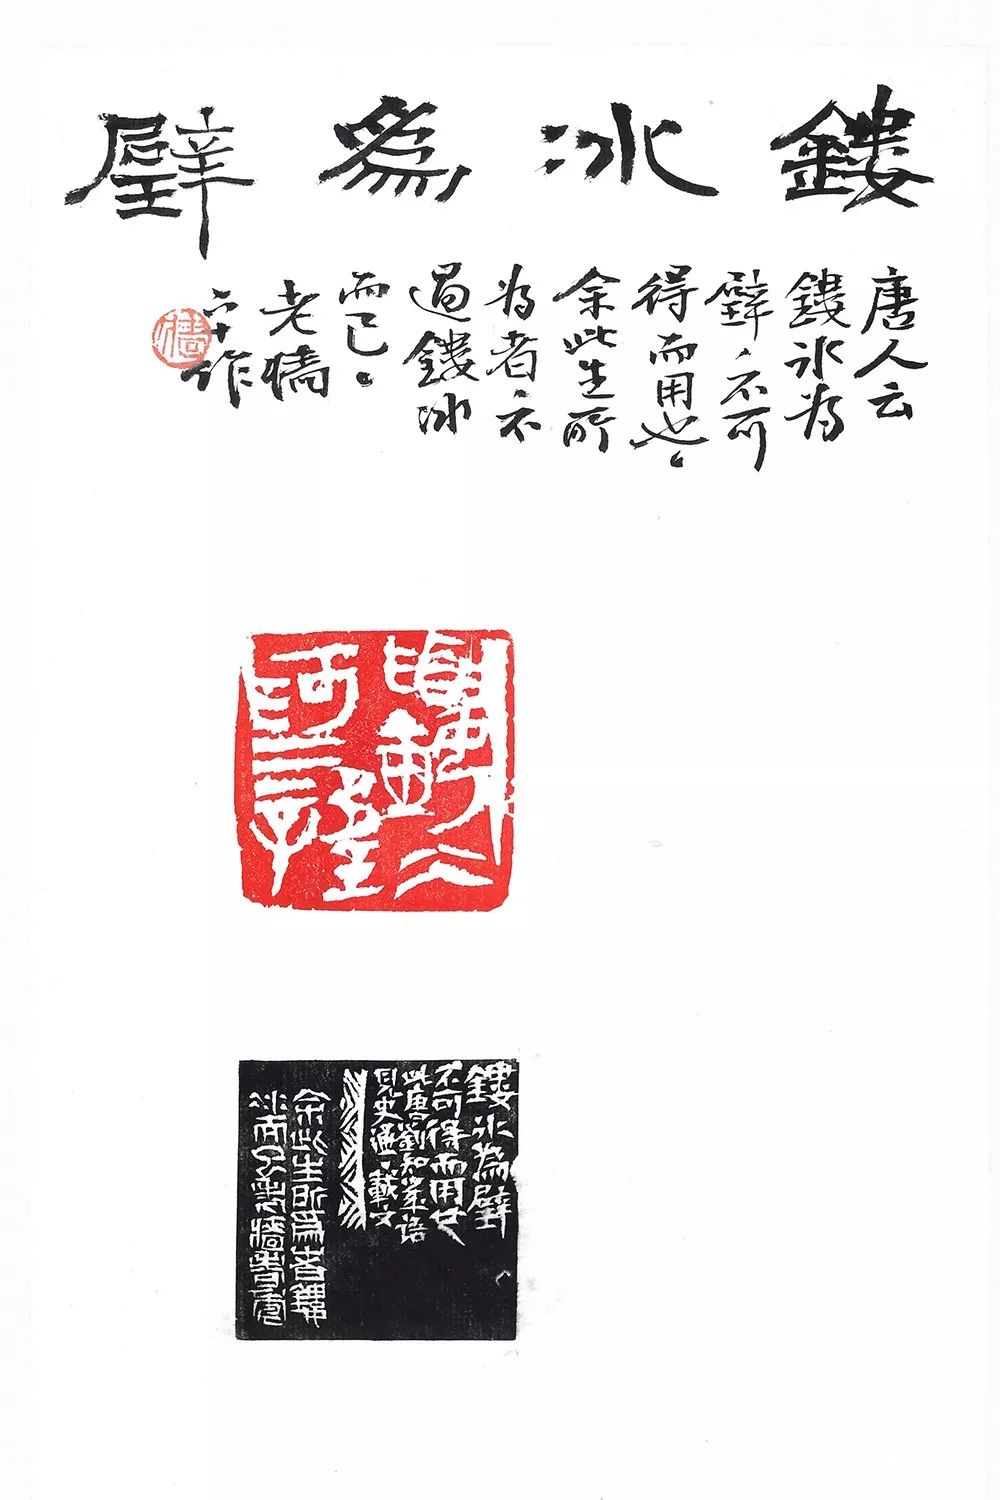 鏤冰為璧
唐人云
鏤冰為
璧、不可
得而用也、
余此生所
為者、不
過鏤冰
而已、
老
六十作
鏤冰為璧
不可得而用也
此唐劉知幾語
見史通、載文
余此生所為者鏤
冰而已